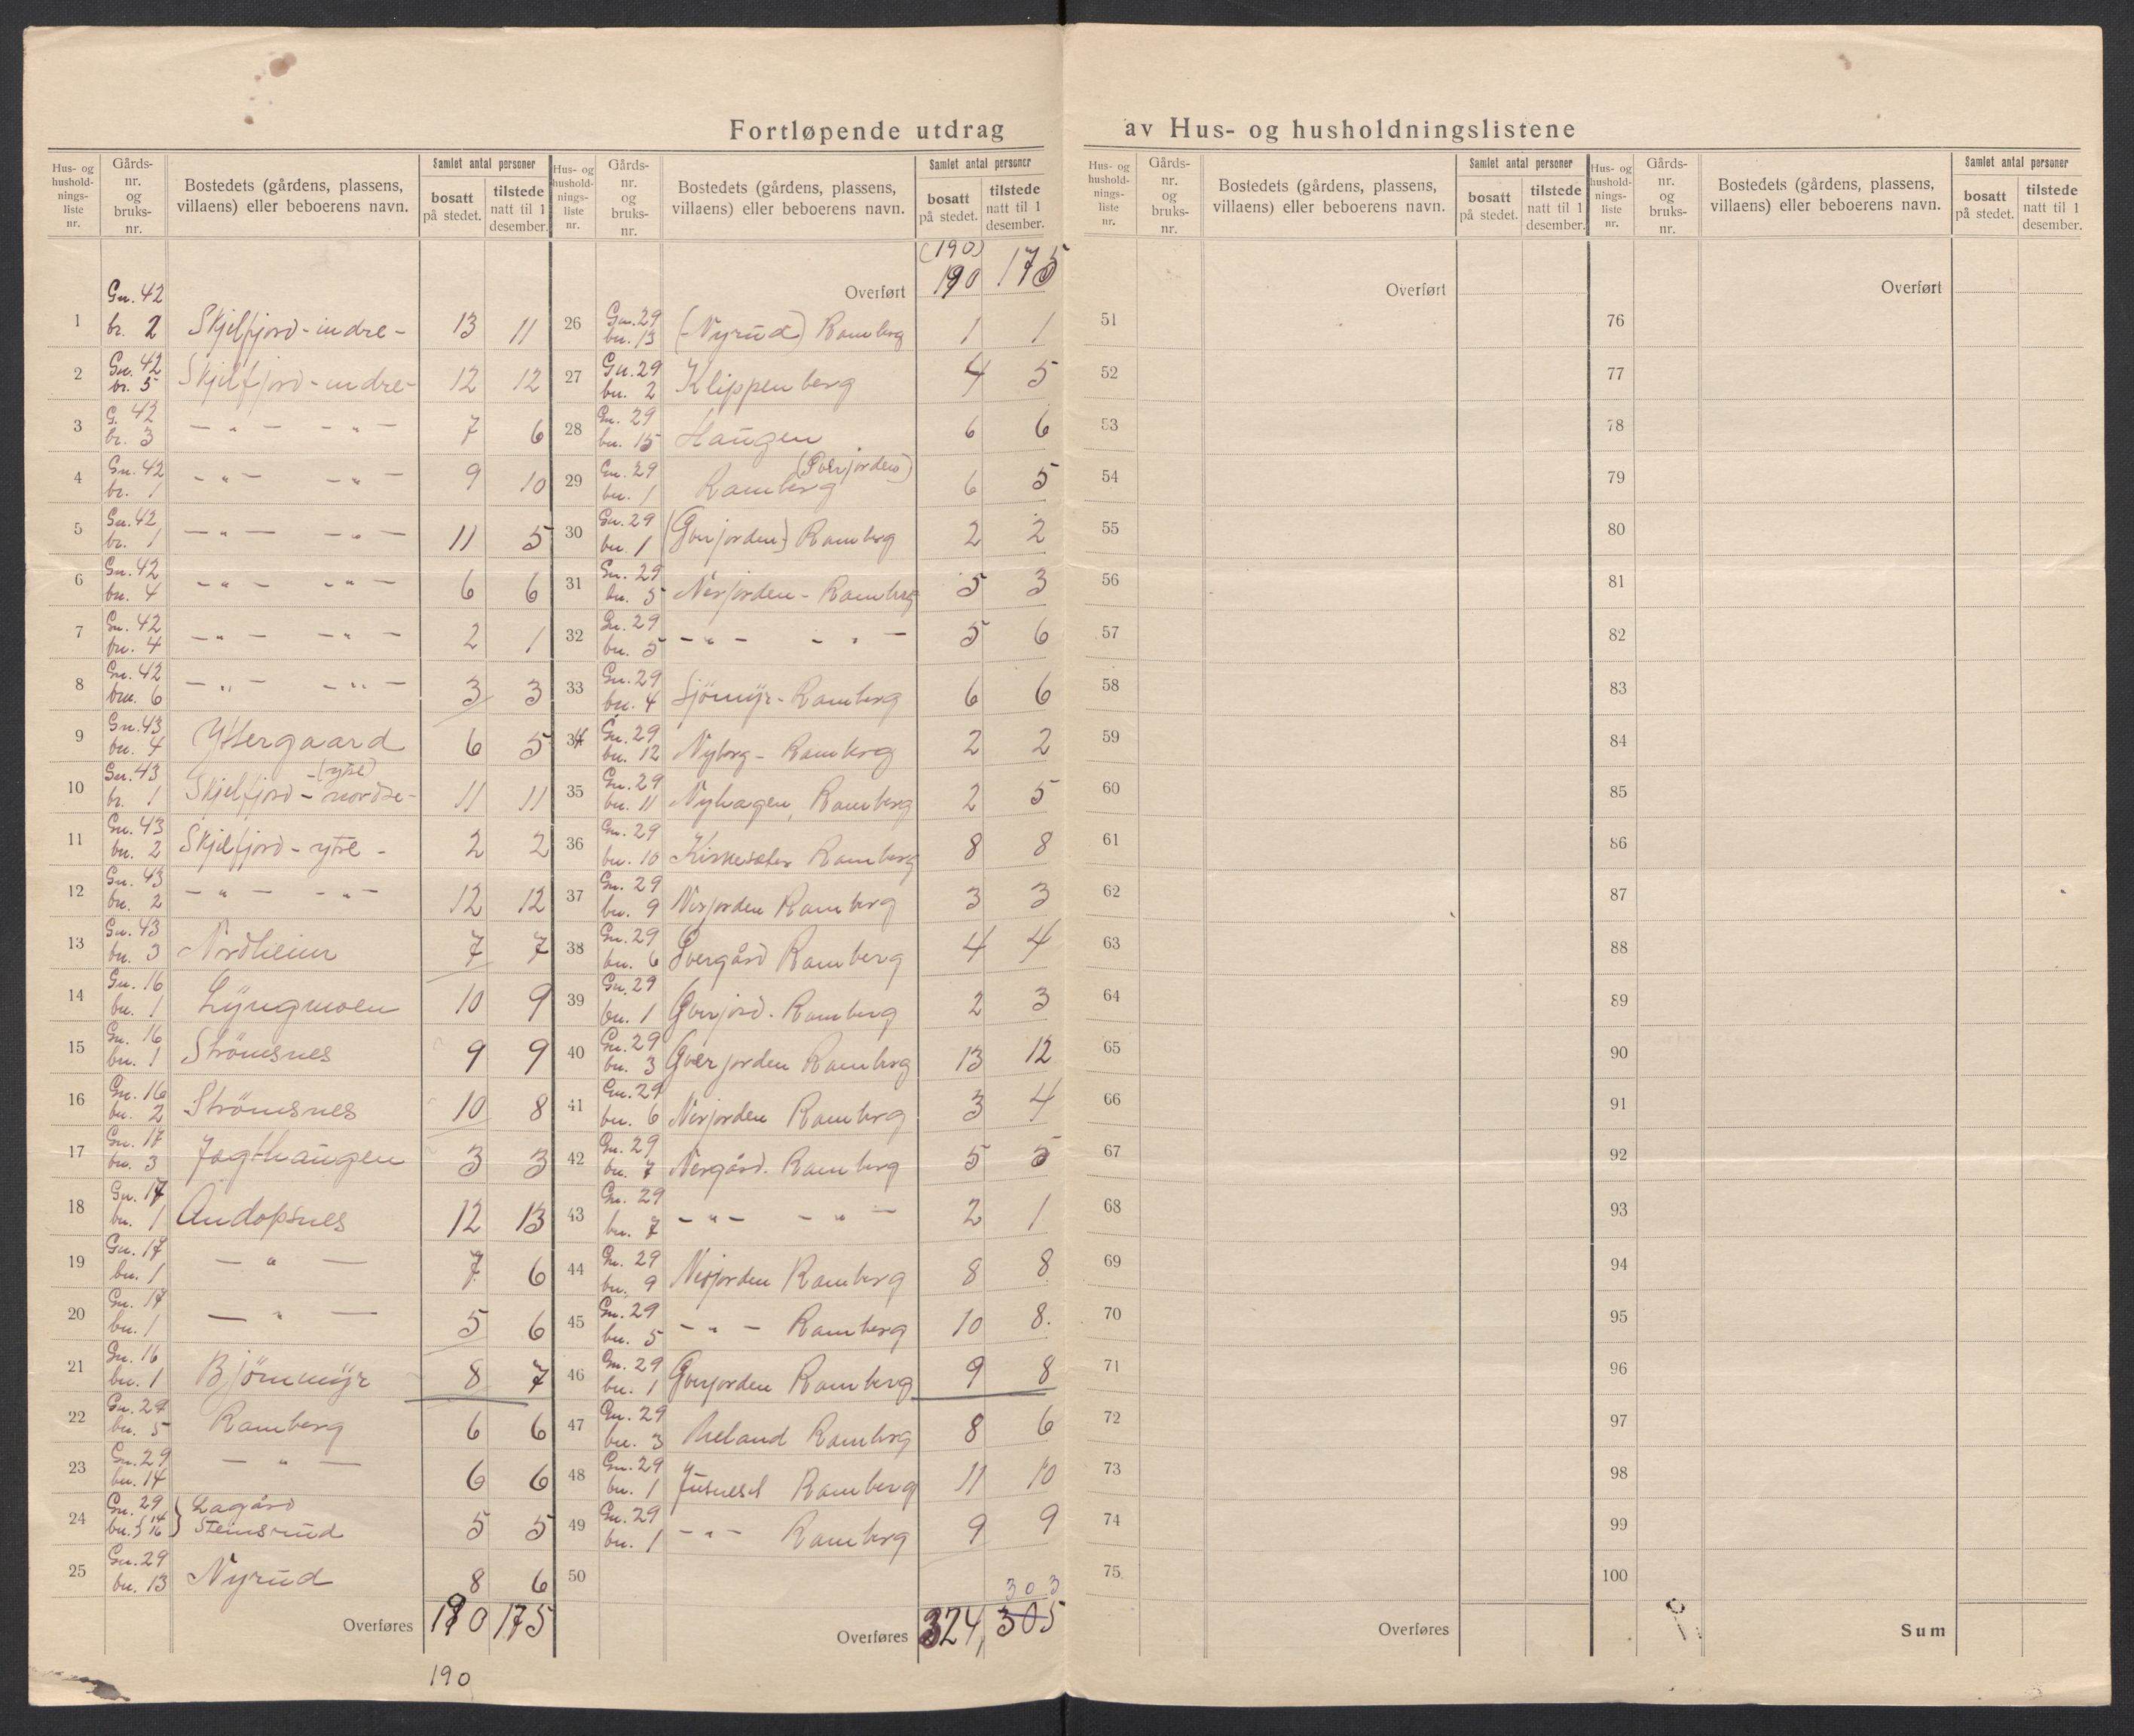 Fortløpende utdrag av Hus- og husholdningslistene
Hus- og husholdnings- liste nr. | Gårds- nr. og bruks- nr. | Bostedets (gårdens, plassens, villaens) eller beboerens navn. | Samlet antal personer bosatt på stedet. | tilstede natt til 1 desember.
1 Gn. 42 br. 2 Skjelfjord - indre - 13 11
2 Gn. 42 br. 5 Skjelfjord - indre - 12 12
3 G. 42 br. 3 - " - - " - 7 6
4 Gn. 42 br. 1 - " - - " - 9 10
5 Gn. 42 br. 1 - " - - " - 11 5
6 Gn. 42 bn. 4 - " - - " - 6 6
7 Gn. 42 bn. 4 - " - - " - 2 1
8 Gn. 42 bn. 6 - " - - " - 3 3
9 Gn. 43 bn. 4 Yttergaard 6 5
10 Gn. 43 br. 1 Skjelfjord - nordre - (ytre) 11 11
11 Gn. 43 bn. 2 Skjelfjord - ytre - 2 2
12 Gn. 43 bn. 2 - " - - " - 12 12
13 Gn. 43 bn. 3 Nordheim 7 7
14 Gn. 16 bn. 1 Lyngmoen 10 9
15 Gn. 16 bn. 1 Strömsnes 9 9
16 Gn. 16 bn. 2 Strömsnes 10 8
17 Gn. 17 bn. 3 Jagthaugen 3 3
18 Gn. 17 bn. 1 Andopsnes 12 13
19 Gn. 17 bn. 1 - " - 7 6
20 Gn. 17 bn. 1 - " - 5 6
21 Gn. 16 bn. 1 Björnmyr 8 7
22 Gn. 29 bn. 5 Ramberg 6 6
23 Gn. 29 bn. 14 - " - 6 6
24 Gn. 29 bn. } 14 16 } Lagård Steinsrud 5 5
25 Gn. 29 bn. 13 Nyrud 8 6
Overføres 190 175
190
Hus- og husholdnings- liste nr. | Gårds- nr. og bruks- nr. | Bostedets (gårdens, plassens, villaens) eller beboerens navn. | Samlet antal personer bosatt på stedet. | tilstede natt til 1 desember.
(190)
Overført 190 175
26 Gn. 29 bn. 13 (Nyrud) Ramberg 1 1
27 Gn. 29 bn. 2 Klippenberg 4 5
28 Gn. 29 bn. 15 Haugen 6 6
29 Gn. 29 bn. 1 Ramberg 6 5
30 Gn. 29 bn. 1 (Överjorden) Ramberg 2 2
31 Gn. 29 bn. 5 Nerjorden - Ramberg 5 3
32 Gn. 29 bn. 5 - " - - " - 5 6
33 Gn. 29 bn. 4 Sjömyr - Ramberg 6 6
34 Gn. 29 bn. 12 Nyborg - Ramberg 2 2
35 Gn. 29 bn. 11 Nyhagen, Ramberg 2 5
36 Gn. 29 bn. 10 Kirkesæter Ramberg 8 8
37 Gn. 29 bn. 9 Nerjorden Ramberg 3 3
38 Gn. 29 bn. 6 Övergård Ramberg 4 4
39 Gn. 29 bn. 1 Överjord. Ramberg 2 3
40 Gn. 29 bn. 3 Överjorden Ramberg 13 12
41 Gn. 29 bn. 6 Nerjorden Ramberg 3 4
42 Gn. 29 bn. 7 Nergård. Ramberg 5 5
43 Gn. 29 bn. 7 - " - - " - 2 1
44 Gn. 29 bn. 9 Nerjorden Ramberg 8 8
45 Gn. 29 bn. 5 - " - Ramberg 10 8.
46 Gn. 29 bn. 1 Överjorden Ramberg 9 8
47 Gn. 29 bn. 3 Ramberg 8 6
48 Gn. 29 bn. 1 Ramberg 11 10
49 Gn. 29 bn. 1 - " - Ramberg 9 9
50
303
Overføres 324, 305
Hus- og husholdnings- liste nr. | Gårds- nr. og bruks- nr. | Bostedets (gårdens, plassens, villaens) eller beboerens navn. | Samlet antal personer bosatt på stedet. | tilstede natt til 1 desember.
Overført
51
52
53
54
55
56
57
58
59
60
61
62
63
64
65
66
67
68
69
70
71
72
73
74
75
Overføres
Hus- og husholdnings- liste nr. | Gårds- nr. og bruks- nr. | Bostedets (gårdens, plassens, villaens) eller beboerens navn. | Samlet antal personer bosatt på stedet. | tilstede natt til 1 desember.
Overført
76
77
78
79
80
81
82
83
84
85
86
87
88
89
90
91
92
93
94
95
96
97
98
99
100
Sum